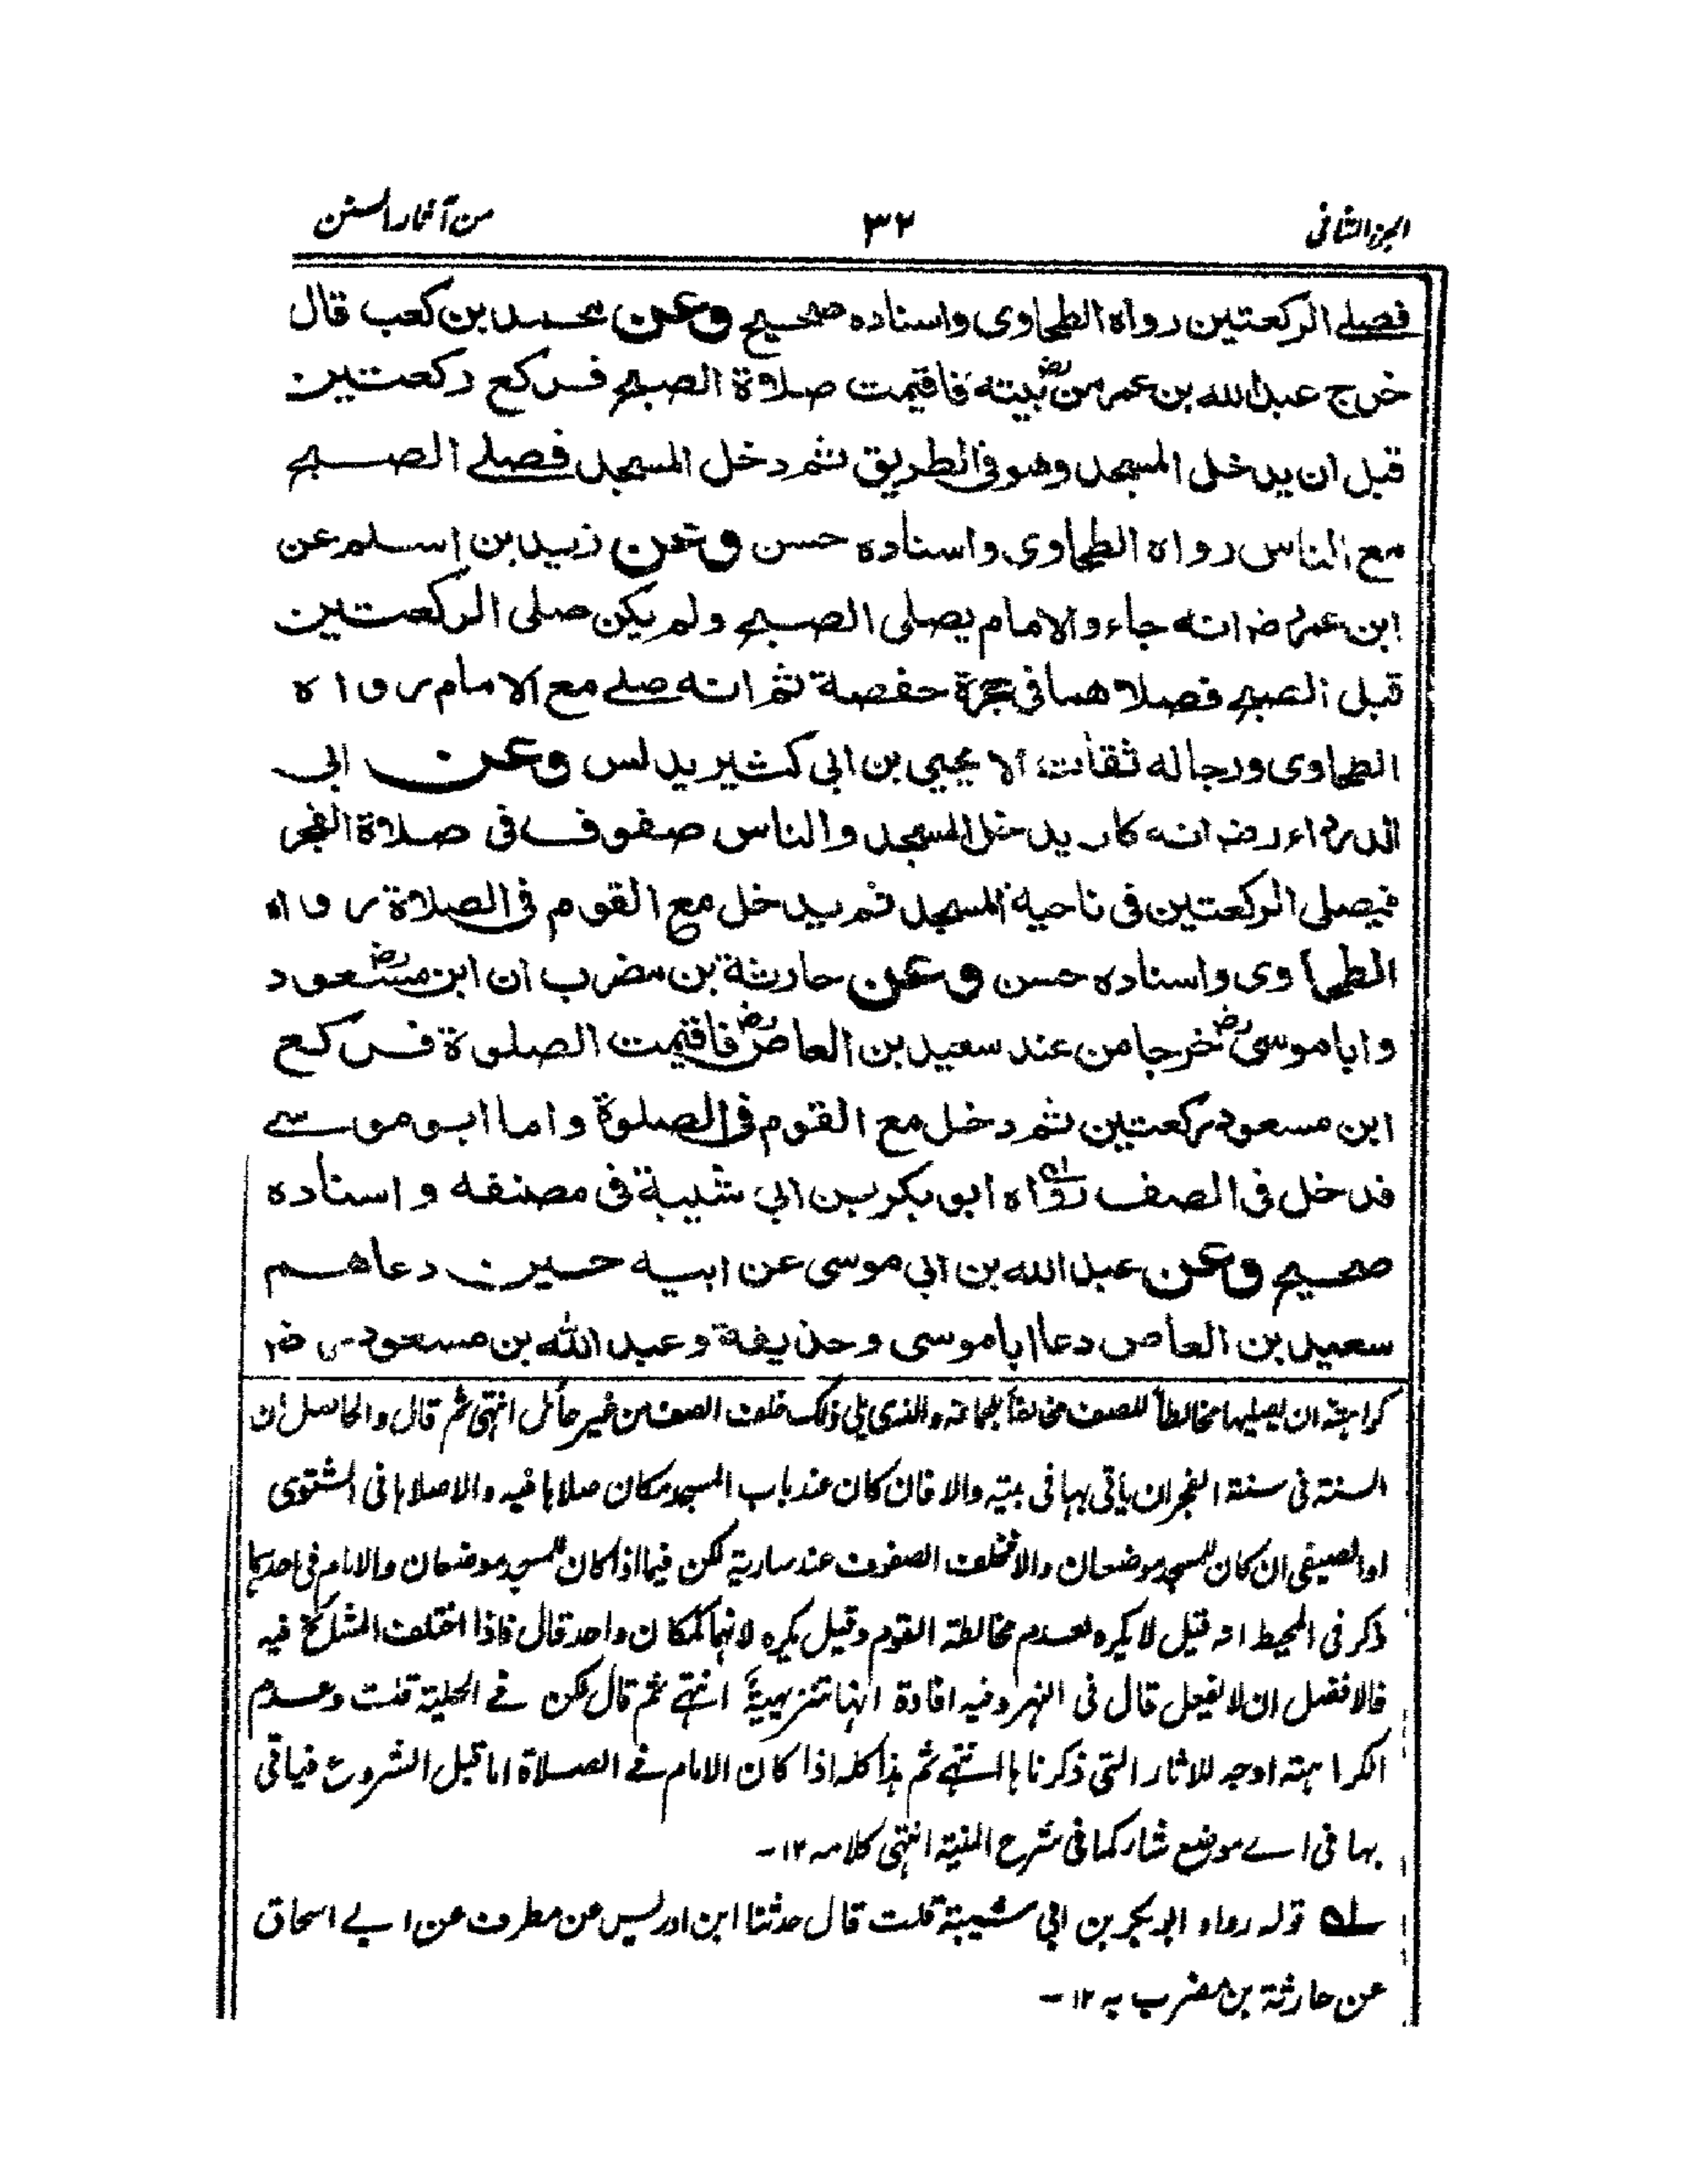 الجزء الثانی ٣٢ من آثار السنن
فصلے الركعتين رواه الطحاوی واسناده صحيح وعن محمد بن كعب قال
خرج عبد الله بن عمر رض من بيته فاقيمت صلاة الصبح فركع ركعتين
قبل ان يدخل المسجد وهو فی الطريق ثم دخل المسجد فصلے الصبح
مع الناس رواه الطحاوی واسناده حسن وعن زيد بن اسلم عن
ابن عمر رض انه جاء والامام يصلی الصبح ولم يكن صلی الركعتين
قبل الصبح فصلاهما فی حجرة حفصة ثم انه صلے مع الامام رواه
الطحاوی ورجاله ثقات الا يحيی بن ابی كثير يدلس وعن ابی
الدرداء رض انه كان يدخل المسجد والناس صفوف فی صلاة الفجر
فيصلی الركعتين فی ناحية المسجد ثم يدخل مع القوم فی الصلاة رواه
الطحاوی واسناده حسن وعن حارثة بن مضرب ان ابن مسعود رض
وابا موسی رض خرجا من عند سعيد بن العاص رض فاقيمت الصلوة فركع
ابن مسعود ركعتين ثم دخل مع القوم فی الصلوة واما ابو موسے
فدخل فی الصف رواه ابو بكر بن ابی شيبة فی مصنفه واسناده
صحيح وعن عبد الله بن ابی موسی عن ابيه حين دعاهم
سعيد بن العاص دعا ابا موسی وحذيفة وعبد الله بن مسعود رض
كراهته ان يصليها مخالطاً للصف مخالفاً للجماعة والذی يلی ذلک خلف الصف من غير حائل انتهی ثم قال والحاصل ان
السنة فی سنة الفجر ان ياتی بها فی بيته والا فان كان عند باب المسجد مكان صلاها فيه والا صلاها فی الشتوی
او الصيفی ان كان للمسجد موضعان والا فخلف الصفوف عند سارية لكن فيما اذا كان للمسجد موضعان والامام فی احدهما
ذكر فی المحيط انه قيل لا يكره لعدم مخالطة القوم وقيل يكره لانهما كمكان واحد قال فاذا اختلف المشائخ فيه
فالافضل ان لا يفعل قال فی النهر وفيه افادة انها تنزيهية انتهے ثم قال لكن فے الحلية قلت وعدم
الكراهة اوجه للاثار التی ذكرناها انتهے ثم هذا كله اذا كان الامام فے الصلاة اما قبل الشروع فياتی
بها فی اے موضع شاء كما فی شرح المنية انتهی كلامه ١٢-
لـه قوله رواه ابو بكر بن ابی شيبة قلت قال حدثنا ابن ادريس عن مطرف عن ابے اسحاق
عن حارثة بن مضرب به ١٢-